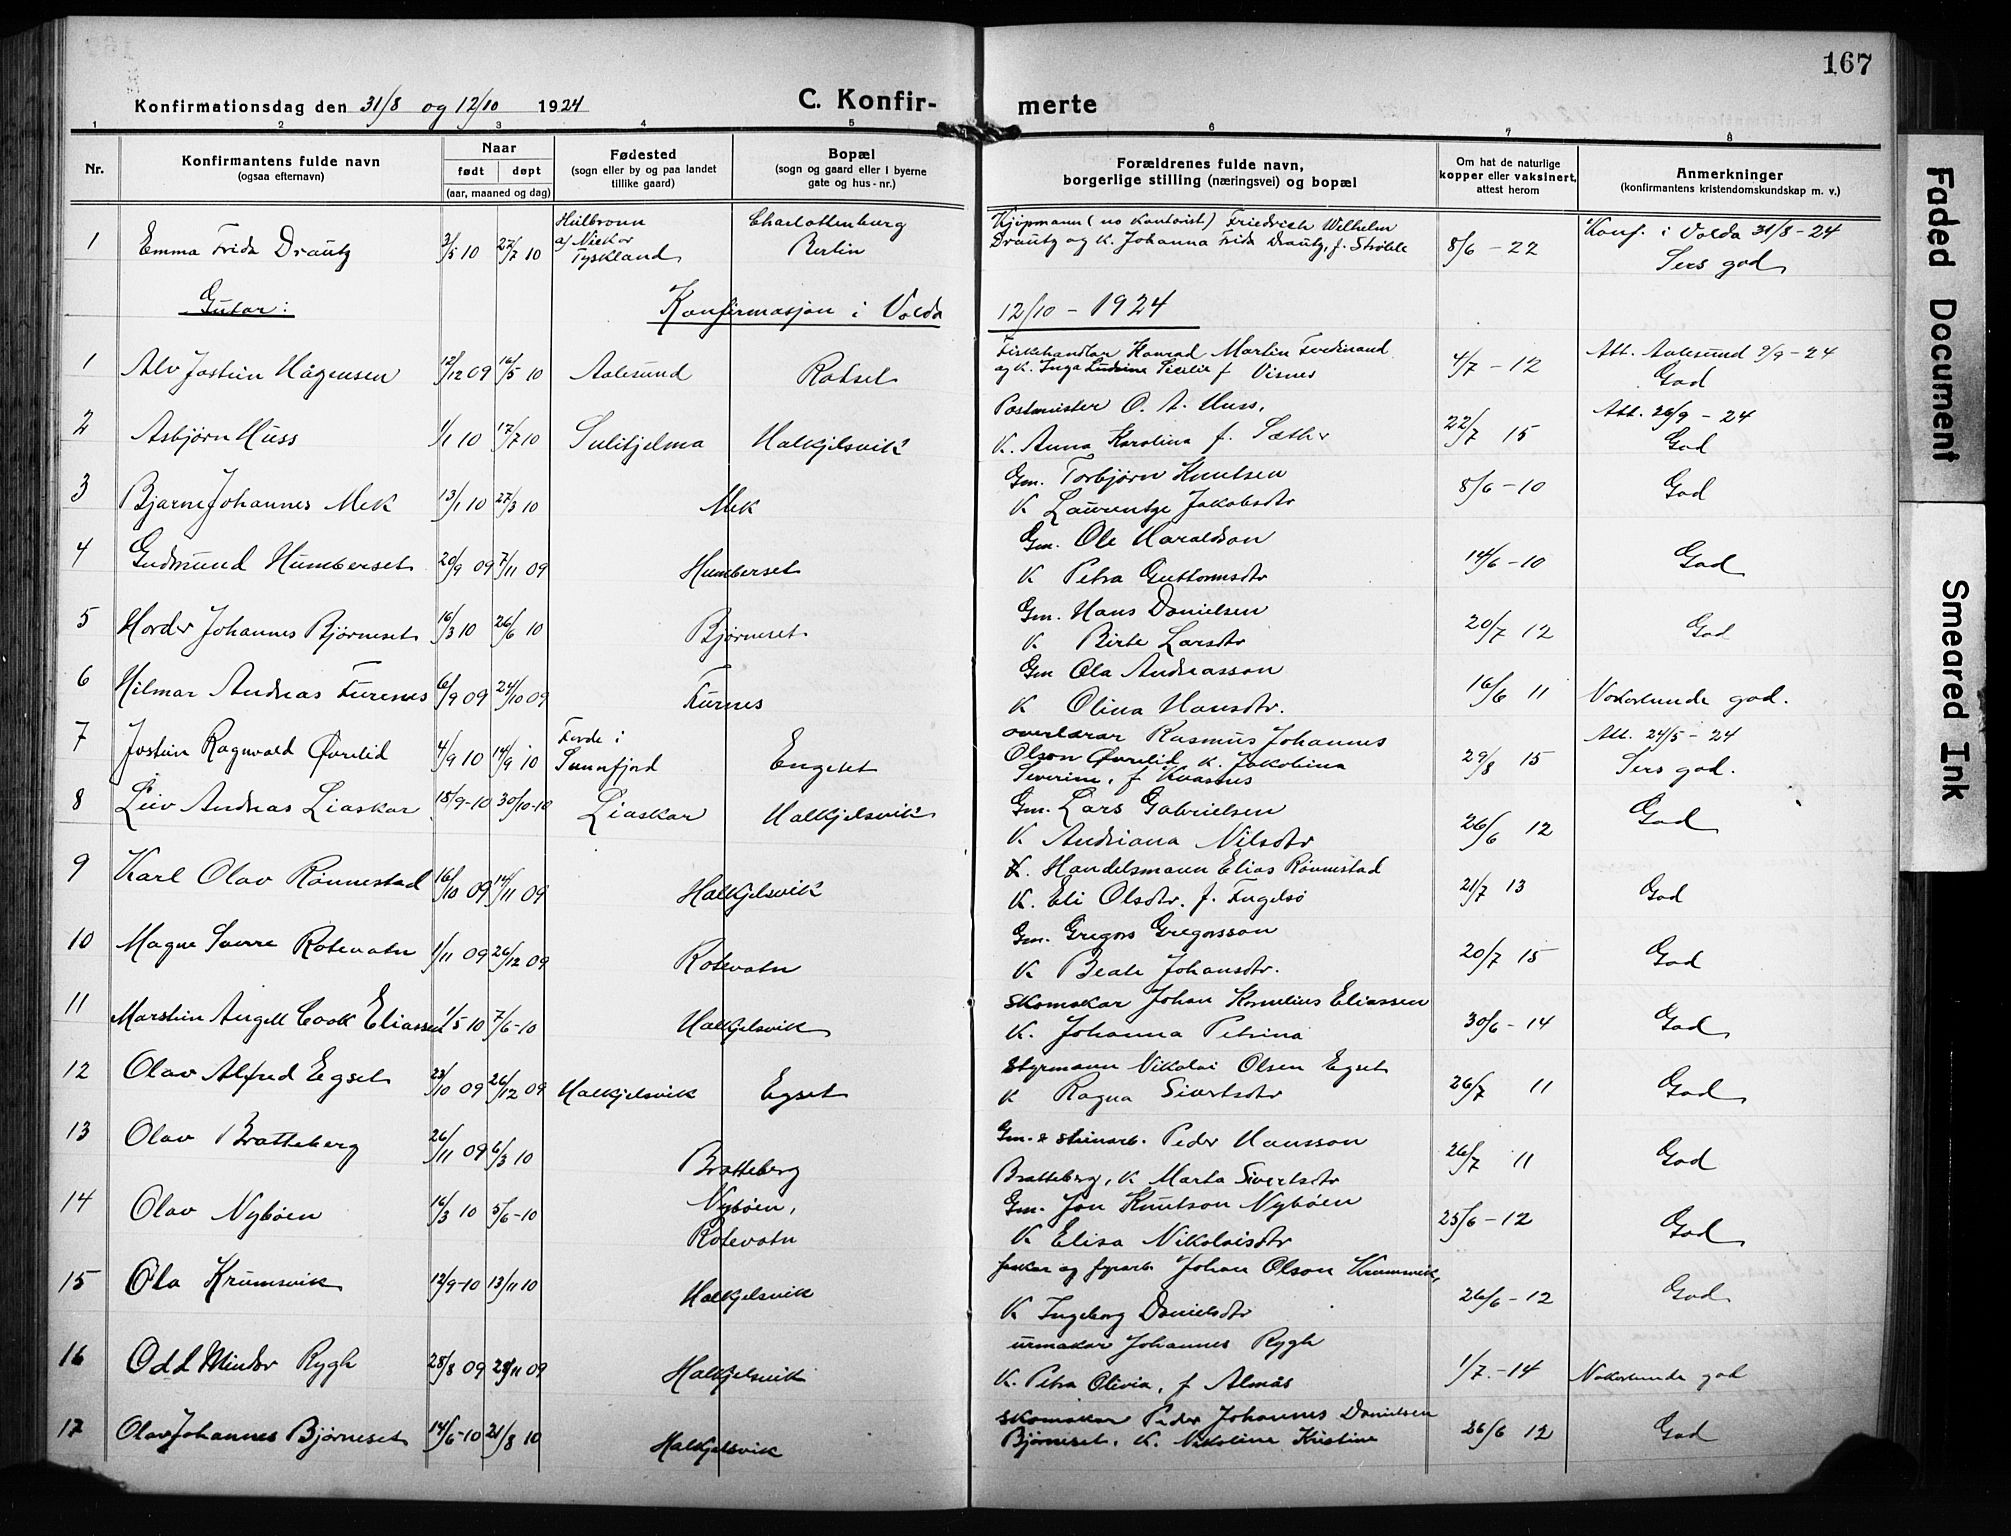 167
Konfirmationsdag den 31/8 og 12/10 1924
C. Konfir- merte
1 2 3 4 5 6 7 8
Nr.
Konfirmantens fulde navn
(ogsaa efternavn)
Naar
født døpt
(aar, maaned og dag)
Fødested
(sogn eller by og paa landet
tillike gaard)
Bopæl
(sogn og gaard eller i byerne
gate og hus-nr.)
Forældrenes fulde navn,
borgerlige stilling (næringsvei) og bopæl
Om hat de naturlige
kopper eller vaksinert,
attest herom
Anmerkninger
(konfirmantens kristendomskundskap m. v.)
1 Emma Frida Drautz 3/5 10 27/7 10 Heilbronn a/ Neckar Tyskland Charlottenburg Berlin
Kjøpmann (no kontorist) Friedrich Wilhelm
Drautz og K. Johanna Frida Drautz, f. Ströbele 8/6 - 22 Konf. i Volda 31/8 - 24
Sers god
Gutar: Konfirmasjon i Volda 12/10 - 1924
1 Alv Jostein Hågensen 12/12 09 16/5 10 Aalesund Rotset
Fiskehandlar Konrad Martin Ferdinand
og K. Inga Ludvine Secilie f Visnes 4/7 - 12 Att. Aalesund 9/9 - 24
God
2 Asbjørn Huss 1/1 10 17/7 10 Sulitjelma Halkjelsvik
Postmeister O. A. Huss,
K. Anna Karolina f. Sæther 22/7 15 Att. 26/9 - 24
God
3 Bjarne Johannes Mek 13/1 10 27/3 10 Mek
Gm. Torbjørn Knutsen
K Laurentze Jakobsdtr 8/6 - 10 God
4 Gudmund Humberset 20/9 09 7/11 09 Humberset
Gm. Ole Haraldson
K Petra Guttormsdtr 14/6 - 10 God
5 Hordr Johannes Bjørneset 16/3 10 26/6 10 Bjørneset
Gm. Hans Danielsen
K Birte Larsdtr 20/7 12 God
6 Hilmar Andreas Furenes 6/9 09 24/10 09 Furnes
Gm Ola Andreasson
K Olina Hansdtr. 16/6 11 Nokorlunde god.
7 Jostein Ragnvald Øvrelid 4/9 10 14/9 10 Førde i Sunnfjord Engeset
Overlærar Rasmus Johannes
Olson Øvrelid K. Jakobina
Severine, f Kvasnes 29/8 15 Att. 24/5 - 24
Sers god.
8 Leiv Andreas Liaskar 18/9-10 30/10-10 Liaskar Halkjelsvik
Gm. Lars Gabrielsen
K. Andriana Nilsdtr 26/6 12 God
9 Karl Olav Rönnestad 16/10 09 14/11 09 Halkjelsvik
K. Handelsmann Elias Rönnestad
K. Eli Olsdtr. f. Fugelsö 21/7 13 God
10 Magne Sverre Rotevatn 1/11 09 26/12 09 Rotevatn
Gm. Gregors Gregorsson
K Beate Johansdtr. 20/7 15 God
11 Marstein Angell Cook Eliassen 1/5 10 7/6-10 Halkjelsvik
Skomakar Johan Kornelius Eliassen
K. Johanna Petrina 30/6 - 14 God
12 Olav Alfred Egset 23/10 09 26/12 09 Halkjelsvik Egset
Styrmann Nikolai Olsen Egset
K Ragna Sivertsdtr 26/7 11 God
13 Olav Bratteberg 26/11 09 6/3 10 Bratteberg
Gm. & steinarb. Peder Hansson
Bratteberg, K. Marta Sivertsdtr 26/7 11 God
14 Olav Nybøen 16/3 10 5/6-10 Nybøen, Rotevatn
Gm. Jon Knutson Nybøen
K Elisa Nikolaisdtr 25/6 - 12 God
15 Ola Krumsvik 12/9-10 13/11 10 Halkjelsvik
og fyrarb. Johan Olson Krumsvik,
K Ingeborg Danielsdtr 26/6 - 12 God
16 Odd Mindor Rygh 28/8 09 28/11 09 Halkjelsvik
urmakar Johannes Rygh
K. Petra Olivia, f Almås 1/7 - 14 Nokorlunde god
17 Olav Johannes Bjørneset 14/6-10 21/8 10 Halkjelsvik
Skomakar Peder Johannes Danielsen
Bjørneset, K. Nikoline Kristine 26/6 12 God
Faded Document
Smeared Ink